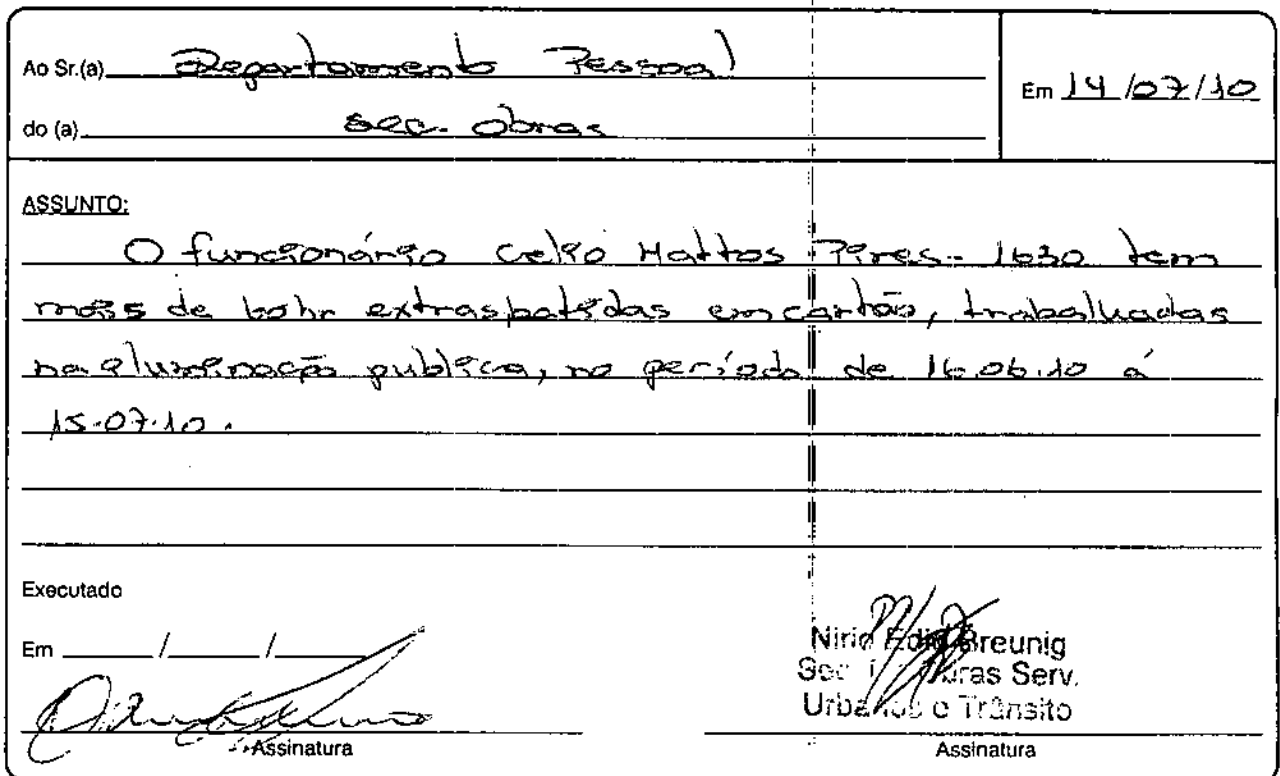 Ao Sr.(a) Departamento Pessoal
Em 14/07/10
do (a) sec. obras
ASSUNTO:
O funcionário Celio Mattos Pires - 1630 tem
mais de 60hr extras batidas em cartão, trabalhadas
na iluminação publica, no período de 16.06.10 á
15.07.10.
Executado
Em ___/___/___
Nirio Breunig
Obras Serv.
Urbanos e Trânsito
Assinatura
Assinatura